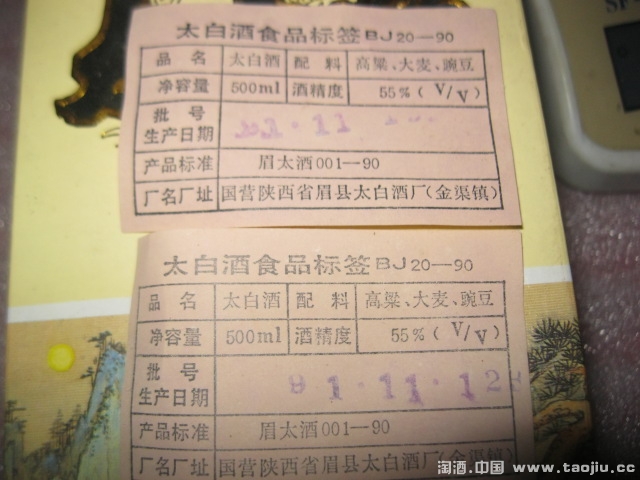 太白酒食品标签BJ20—90
品名 太白酒 配料 高粱、大麦、豌豆
净容量 500ml 酒精度 55%(V/V)
批号
生产日期 91·11
产品标准 眉太酒001—90
厂名厂址 国营陕西省眉县太白酒厂(金渠镇)
太白酒食品标签BJ20—90
品名 太白酒 配料 高粱、大麦、豌豆
净容量 500ml 酒精度 55%(V/V)
批号
生产日期 91·11·12
产品标准 眉太酒001—90
厂名厂址 国营陕西省眉县太白酒厂(金渠镇)
淘酒.中国 www.taojiu.cc